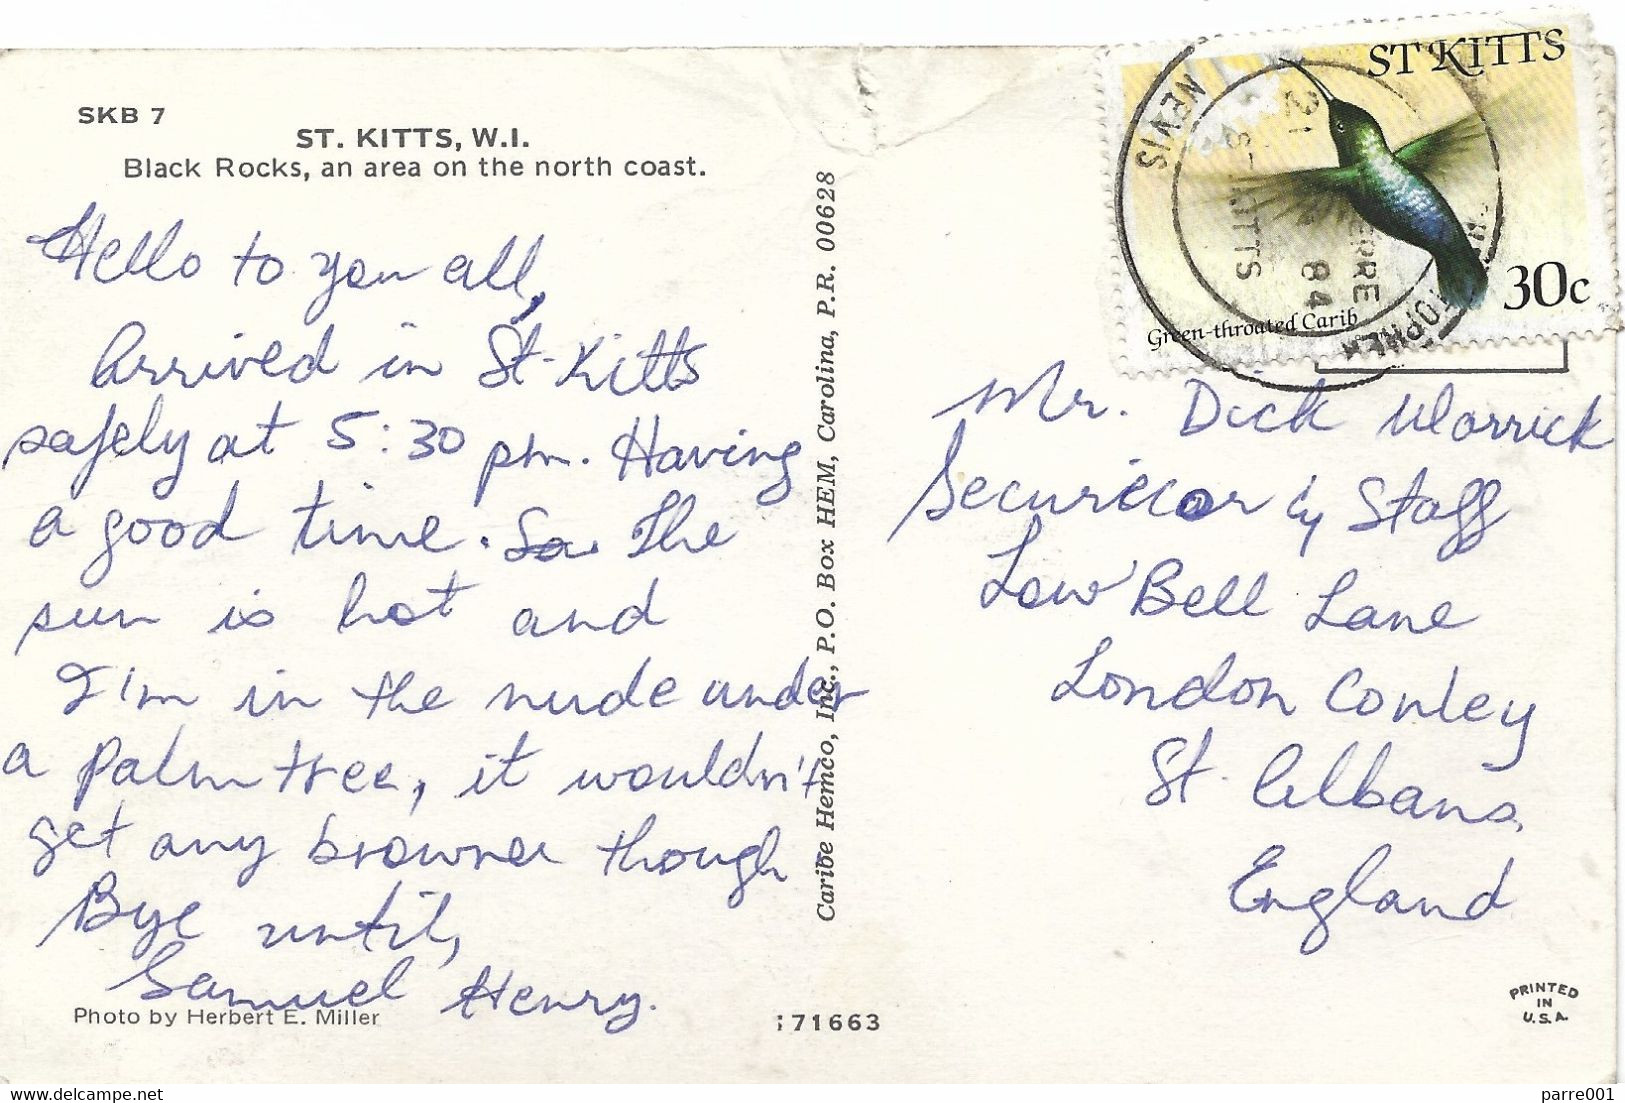 SKB 7
ST. KITTS, W.I.
Black Rocks, an area on the north coast.
Hello to you all,
Arrived in St-Kitts
safely at 5:30 pm. Having
a good time. So. The
sun is hot and
I'm in the nude under
a palm tree, it wouldn't
get any browner though
Bye until,
Samuel Henry.
Photo by Herbert E. Miller
Caribe Hemco, Inc., P.O. Box HEM, Carolina, P.R. 00628
171663
ST KITTS
30c
Green-throated Carib
NEVIS
21
84
ST. KITTS
Mr. Dick Warrick
Securicor & Staff
Low Bell Lane
London Conley
St. Albans,
England
PRINTED
IN
U.S.A.
parre001